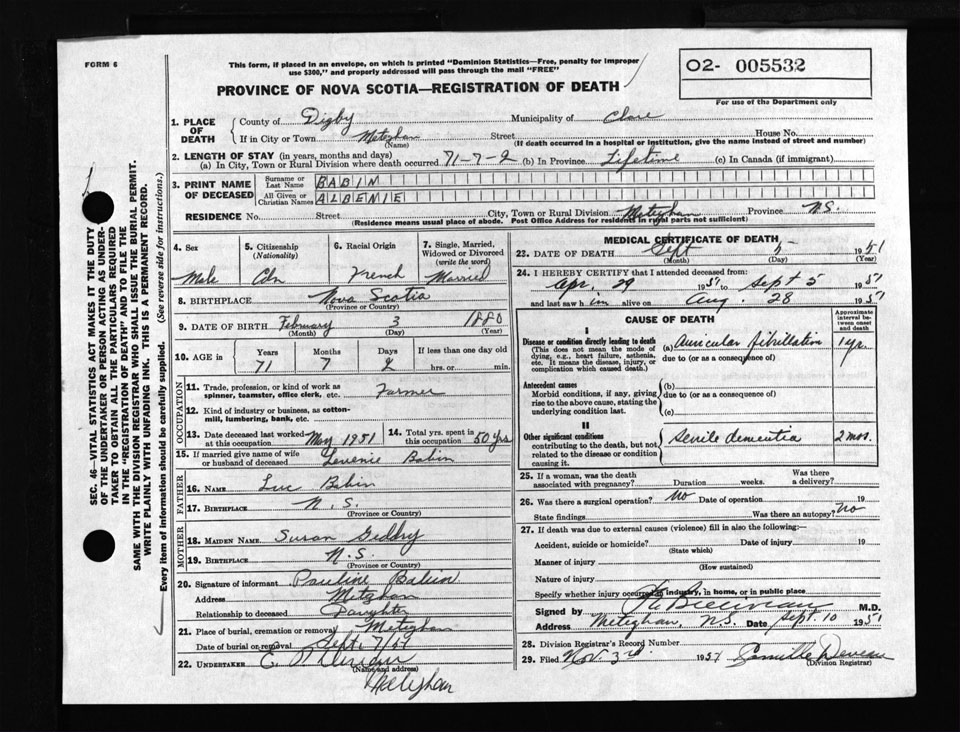 FORM 6
This form, if placed in an envelope, on which is printed "Dominion Statistics—Free, penalty for improper
use $300," and properly addressed will pass through the mail "FREE"
PROVINCE OF NOVA SCOTIA—REGISTRATION OF DEATH
O2- 005532
For use of the Department only
1. PLACE OF DEATH County of Digby Municipality of Clare
If in City or Town Meteghan (Name) Street House No.
(If death occurred in a hospital or institution, give the name instead of street and number)
2. LENGTH OF STAY (in years, months and days)
(a) In City, Town or Rural Division where death occurred 71-7-2 (b) In Province Lifetime (c) In Canada (if immigrant)
3. PRINT NAME OF DECEASED
Surname or Last Name BABIN
All Given or Christian Names ALBENIE
RESIDENCE No. Street City, Town or Rural Division Meteghan Province N.S.
(Residence means usual place of abode. Post Office Address for residents in rural parts not sufficient)
4. Sex Male
5. Citizenship (Nationality) Cdn
6. Racial Origin French
7. Single, Married, Widowed or Divorced (write the word) Married
8. BIRTHPLACE Nova Scotia
(Province or Country)
9. DATE OF BIRTH February 3 1880
(Month) (Day) (Year)
10. AGE in Years Months Days If less than one day old
71 7 2 hrs. or min.
OCCUPATION
11. Trade, profession, or kind of work as
spinner, teamster, office clerk, etc. Farmer
12. Kind of industry or business, as cotton-
mill, lumbering, bank, etc.
13. Date deceased last worked at this occupation May 1951 14. Total yrs. spent in this occupation 50 yrs
15. If married give name of wife
or husband of deceased Babin
FATHER
16. NAME Luc Babin
17. BIRTHPLACE N.S.
(Province or Country)
MOTHER
18. MAIDEN NAME Susan
19. BIRTHPLACE N.S.
(Province or Country)
20. Signature of informant Pauline Babin
Address Meteghan
Relationship to deceased Daughter
21. Place of burial, cremation or removal Meteghan
Date of burial or removal Sept. 7/51
22. UNDERTAKER E.
(Name and address)
Meteghan
MEDICAL CERTIFICATE OF DEATH
23. DATE OF DEATH Sept 5 1951
(Month) (Day) (Year)
24. I HEREBY CERTIFY that I attended deceased from:
Apr. 29 1951 to Sept 5 1951
and last saw him alive on Aug. 28 1951
CAUSE OF DEATH
Approximate interval between onset and death
I
Disease or condition directly leading to death
(This does not mean the mode of
dying, e.g., heart failure, asthenia,
etc. It means the disease, injury, or
complication which caused death.)
(a) Auricular fibrillation 1 yr.
due to (or as a consequence of)
Antecedent causes
Morbid conditions, if any, giving
rise to the above cause, stating the
underlying condition last.
(b)
due to (or as a consequence of)
(c)
II
Other significant conditions
contributing to the death, but not
related to the disease or condition
causing it.
Senile dementia 2 mos.
25. If a woman, was the death associated with pregnancy? Duration weeks. Was there a delivery?
26. Was there a surgical operation? No Date of operation 19
State findings Was there an autopsy? No
27. If death was due to external causes (violence) fill in also the following:—
Accident, suicide or homicide? Date of injury 19
(State which)
Manner of injury
(How sustained)
Nature of injury
Specify whether injury occurred in industry, in home, or in public place
Signed by M.D.
Address Meteghan, N.S. Date Sept. 10 1951
28. Division Registrar's Record Number
29. Filed Nov. 3rd 1951 Camille Deveau
(Division Registrar)
SEC. 46—VITAL STATISTICS ACT MAKES IT THE DUTY
OF THE UNDERTAKER OR PERSON ACTING AS UNDER-
TAKER TO OBTAIN ALL THE PARTICULARS REQUIRED
IN THE "REGISTRATION OF DEATH" AND TO FILE THE
SAME WITH THE DIVISION REGISTRAR WHO SHALL ISSUE THE BURIAL PERMIT.
WRITE PLAINLY WITH UNFADING INK. THIS IS A PERMANENT RECORD.
Every item of information should be carefully supplied. (See reverse side for instructions.)